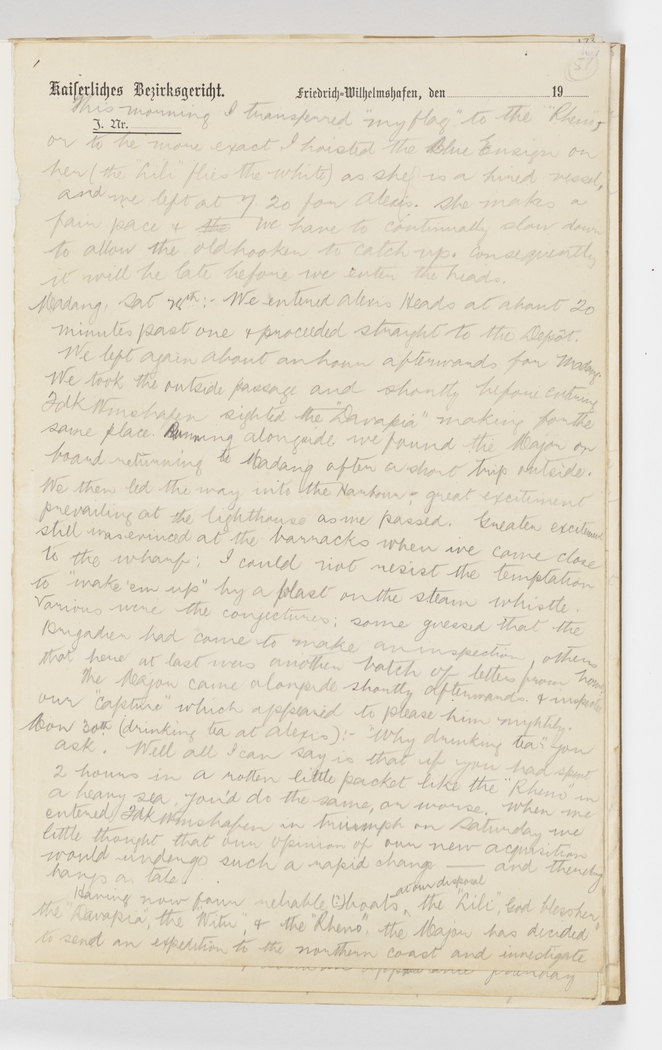 173
57
Kaiserliches Bezirksgericht. Friedrich-Wilhelmshafen, den 19
J. Nr.
This morning I transferred "my flag" to the "Rheno",
or to be more exact I hoisted the Blue Ensign on
her (the "Lili" flies the white) as she is a hired vessel,
and we left at 7 20 for Alexis. She makes a
fair pace & we have to continually slow down
to allow the old hooker to catch up. Consequently
it will be late before we enter the heads.
Madang, Sat 28th:- We entered Alexis Heads at about 20
minutes past one & proceeded straight to the Depôt.
We left again about an hour afterwards for Madang.
We took the outside passage and shortly before entering
Fdk Wmshafen sighted the "Davapia" making for the
same place. Running alongside we found the Major on
board returning to Madang after a short trip outside.
We then led the way into the Harbour - great excitement
prevailing at the lighthouse as we passed. Greater excitement
still was evinced at the barracks when we came close
to the wharf; I could not resist the temptation
to "wake 'em up" by a blast on the steam whistle.
Various were the conjectures; some guessed that the
Brigadier had come to make an inspection, others
that here at last was another batch of letters from home.
The Major came alongside shortly afterwards & inspected
our "capture" which appeared to please him mightily.
Mon 30th (drinking tea at Alexis):- "Why drinking tea?" you
ask. Well all I can say is that if you had spent
2 hours in a rotten little packet like the "Rheno" in
a heavy sea, you'd do the same, or worse. When we
entered Fdk Wmshafen in triumph on Saturday we
little thought that our opinion of our new acquisition
would undergo such a rapid change — and thereby
hangs a tale.
Having now four reliable (?) boats at our disposal, the "Lili", God bless her,
the "Davapia", the "Witu", & the "Rheno", the Major has decided
to send an expedition to the northern coast and investigate
appearance